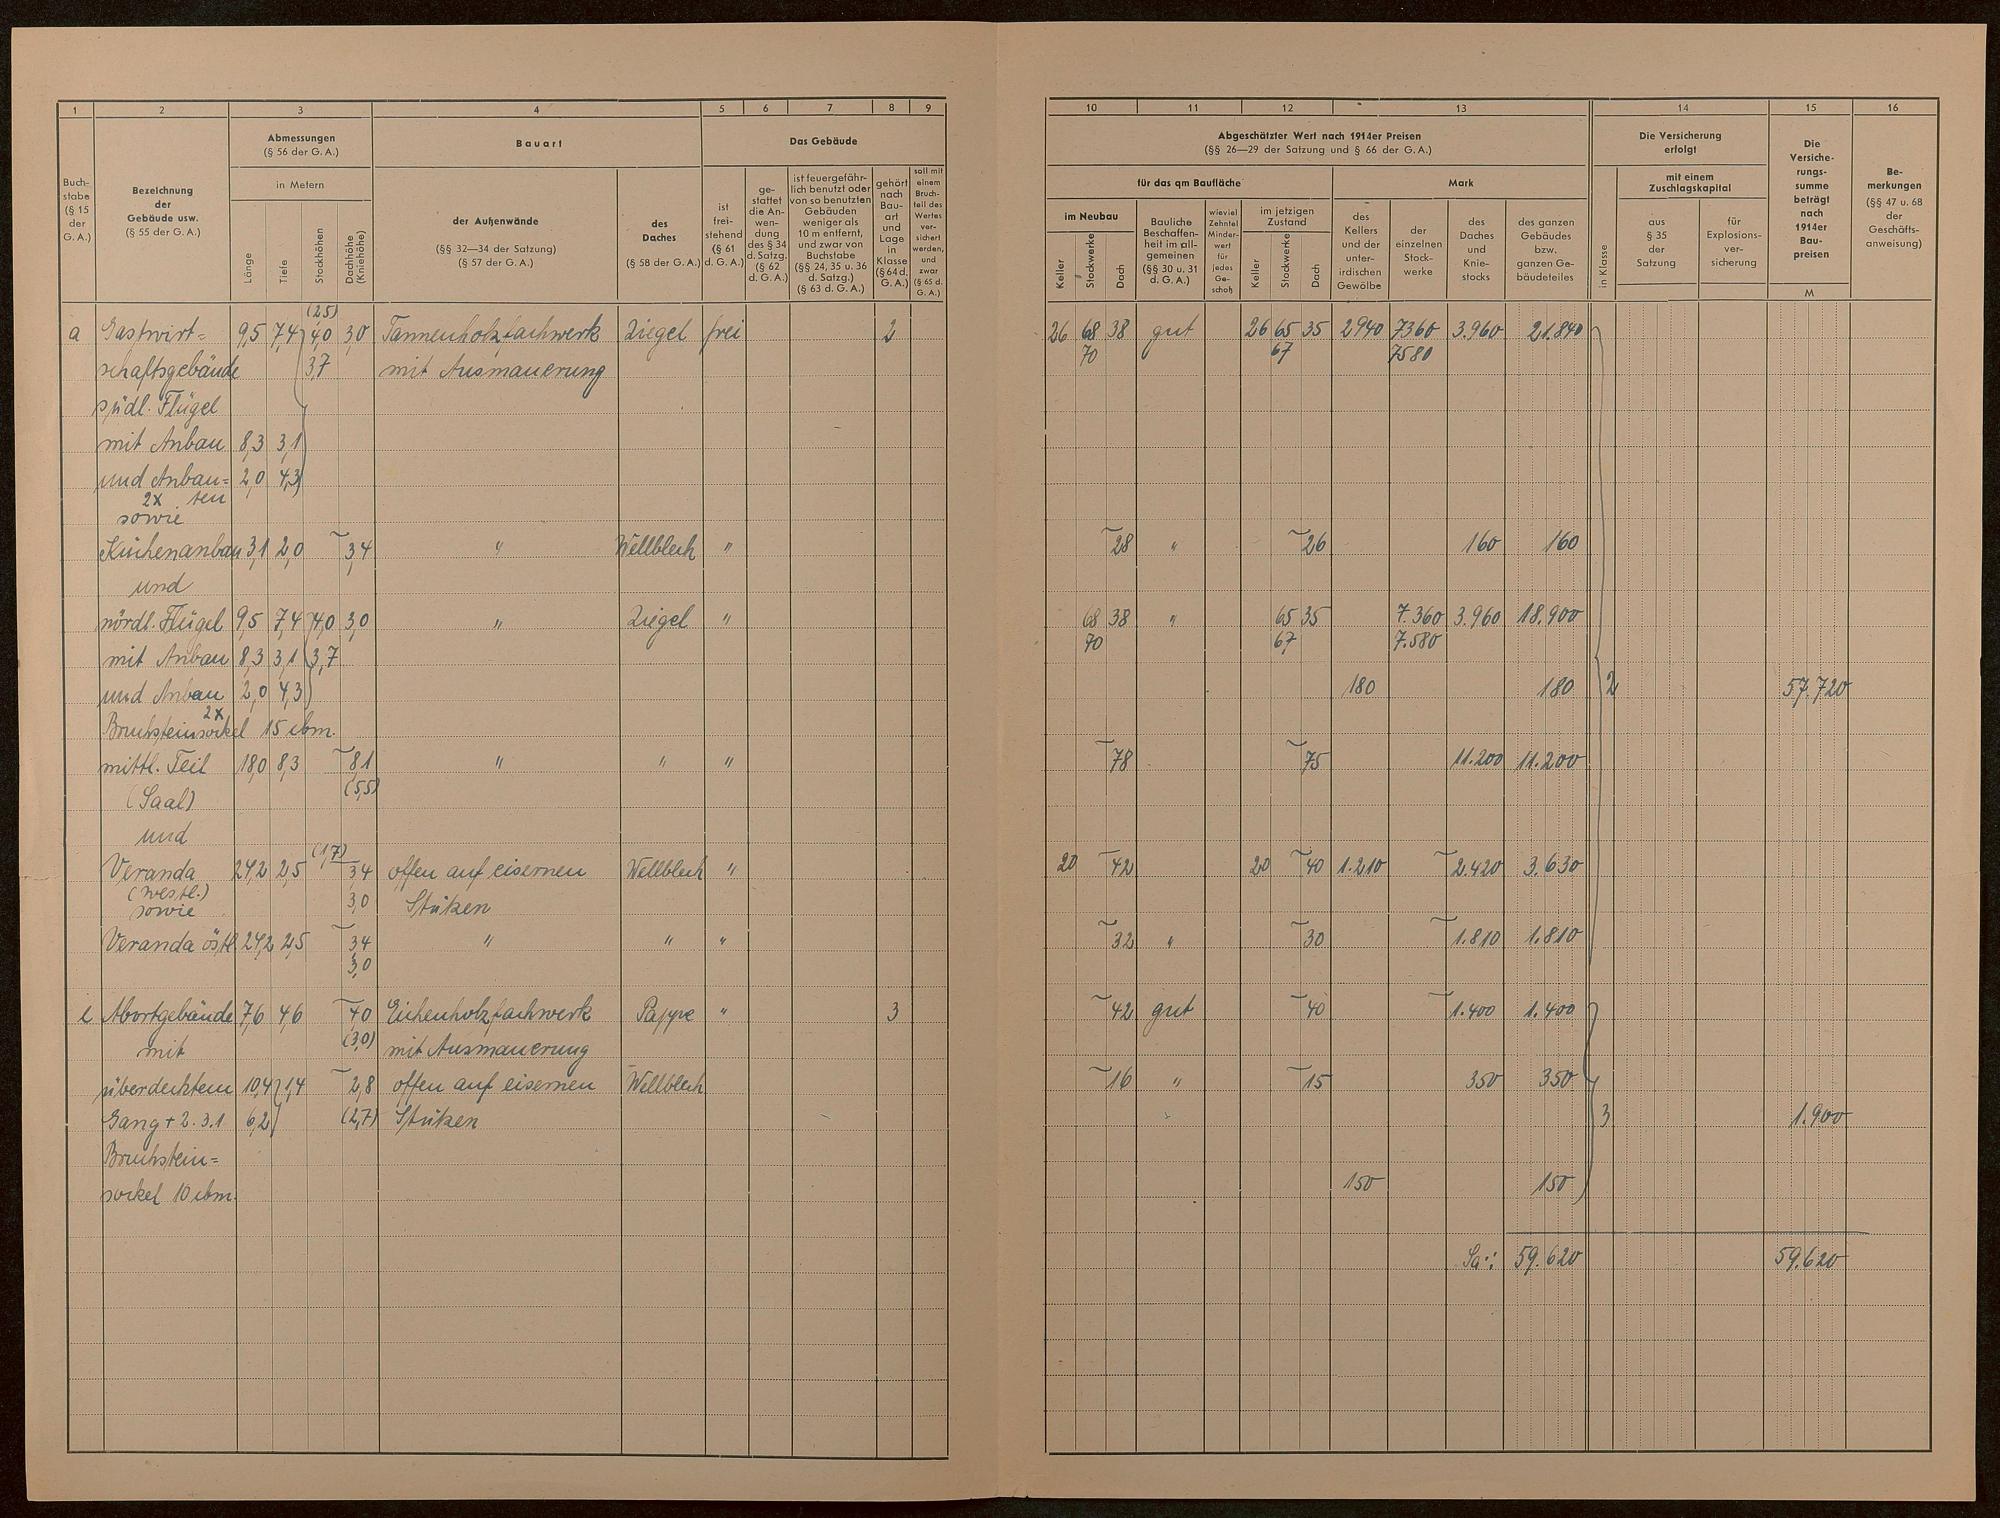 1 2 3 4 5 6 7 8 9
Buch-
stabe
(§ 15
der
G. A.)
Bezeichnung
der
Gebäude usw.
(§ 55 der G. A.)
Abmessungen
(§ 56 der G. A.)
in Metern
Länge
Tiefe
Stockhöhen
Dachhöhe
(Kniehöhe)
Bauart
der Außenwände
(§§ 32—34 der Satzung)
(§ 57 der G. A.)
des
Daches
(§ 58 der G. A.)
Das Gebäude
ist
frei-
stehend
(§ 61
d. G. A.)
ge-
stattet
die An-
wen-
dung
des § 34
d. Satzg.
(§ 62
d. G. A.)
ist feuergefähr-
lich benutzt oder
von so benutzten
Gebäuden
weniger als
10 m entfernt,
und zwar von
Buchstabe
(§§ 24, 35 u. 36
d. Satzg.)
(§ 63 d. G. A.)
gehört
nach
Bau-
art
und
Lage
in
Klasse
(§ 64 d.
G. A.)
soll mit
einem
Bruch-
teil des
Wertes
ver-
sichert
werden,
und
zwar
(§ 65 d.
G. A.)
(2,5)
a Gastwirt= 9,5 7,4 4,0 3,0 Tannenholzfachwerk Ziegel frei 2
schaftsgebäude 3,7 mit Ausmauerung
südl. Flügel
mit Anbau 8,3 3,1
und Anbau= 2,0 4,3
2x ten
sowie
Küchenanbau 3,1 2,0 – 3,4 " Wellblech "
und
nördl. Flügel 9,5 7,4 4,0 3,0 " Ziegel "
mit Anbau 8,3 3,1 3,7
und Anbau 2,0 4,3
2x
Bruchsteinsockel 15 cbm.
mittl. Teil 18,0 8,3 – 8,1 " " "
(Saal) (5,5)
und
(1,7)
Veranda 24,2 2,5 3,4 offen auf eisernen Wellblech "
(westl.) 3,0 Stützen
sowie
Veranda östl. 24,2 2,5 – 3,4 " " "
3,0
e Abortgebäude 7,6 4,6 – 4,0 Eichenholzfachwerk Pappe " 3
mit (3,0) mit Ausmauerung
überdecktem 10,4 1,4 – 2,8 offen auf eisernen Wellblech
Gang + 2.3.1 6,2 (2,7) Stützen
Bruchstein=
sockel 10 cbm.
10 11 12 13 14 15 16
Abgeschätzter Wert nach 1914er Preisen
(§§ 26—29 der Satzung und § 66 der G. A.)
für das qm Baufläche
im Neubau
Keller
Stockwerke
Dach
Bauliche
Beschaffen-
heit im all-
gemeinen
(§§ 30 u. 31
d. G. A.)
wieviel
Zehntel
Minder-
wert
für
jedes
Ge-
schoß
im jetzigen
Zustand
Keller
Stockwerke
Dach
Mark
des
Kellers
und der
unter-
irdischen
Gewölbe
der
einzelnen
Stock-
werke
des
Daches
und
Knie-
stocks
des ganzen
Gebäudes
bzw.
ganzen Ge-
bäudeteiles
Die Versicherung
erfolgt
in Klasse
mit einem
Zuschlagskapital
aus
§ 35
der
Satzung
für
Explosions-
ver-
sicherung
Die
Versiche-
rungs-
summe
beträgt
nach
1914er
Bau-
preisen
M
Be-
merkungen
(§§ 47 u. 68
der
Geschäfts-
anweisung)
26 68 38 gut 26 65 35 2940 7360 3.960 21.840
70 67 7580
– 28 " – 26 160 160
68 38 " 65 35 7.360 3.960 18.900
70 67 7.580
180 180 2 57.720
– 78 – 75 11.200 11.200
20 – 42 20 – 40 1.210 – 2.420 3.630
– 32 " – 30 – 1.810 1.810
– 42 gut – 40 – 1.400 1.400
– 16 " – 15 350 350
3 1.900
150 150
Sa.: 59.620 59.620